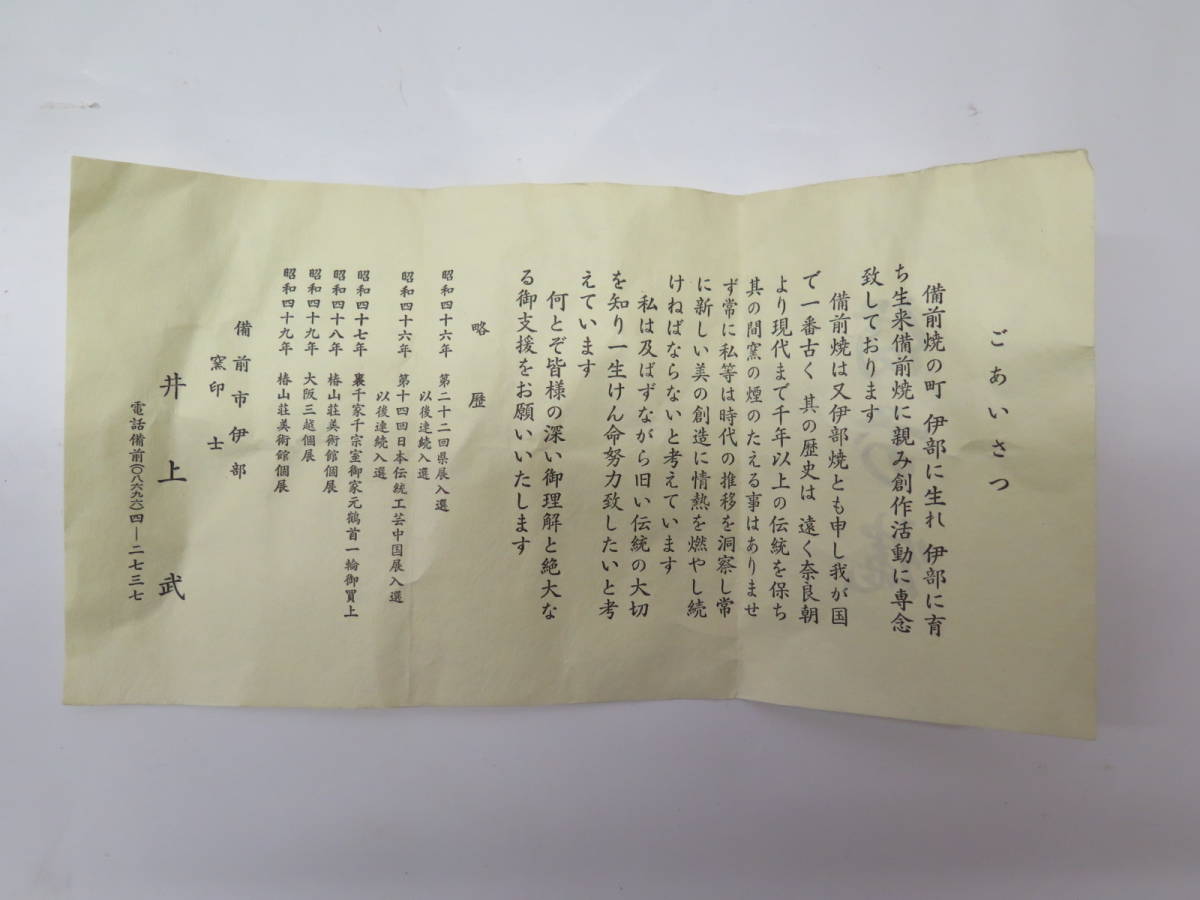 ごあいさつ
備前焼の町　伊部に生れ　伊部に育
ち生来備前焼に親み創作活動に専念
致しております
備前焼は又伊部焼とも申し我が国
で一番古く　其の歴史は　遠く奈良朝
より現代まで千年以上の伝統を保ち
其の間窯の煙のたえる事はありませ
ず常に私等は時代の推移を洞察し常
に新しい美の創造に情熱を燃やし続
けねばならないと考えています
私は及ばずながら旧い伝統の大切
を知り一生けん命努力致したいと考
えています
何とぞ皆様の深い御理解と絶大な
る御支援をお願いいたします
略　歴
昭和四十六年　第二十二回県展入選
以後連続入選
昭和四十六年　第十四回日本伝統工芸中国展入選
以後連続入選
昭和四十七年　裏千家千宗室御家元鶴首一輪御買上
昭和四十八年　椿山荘美術館個展
昭和四十九年　大阪三越個展
昭和四十九年　椿山荘美術館個展
備前市伊部
窯印　士
井上　武
電話備前(〇八六九六)四―二七三七